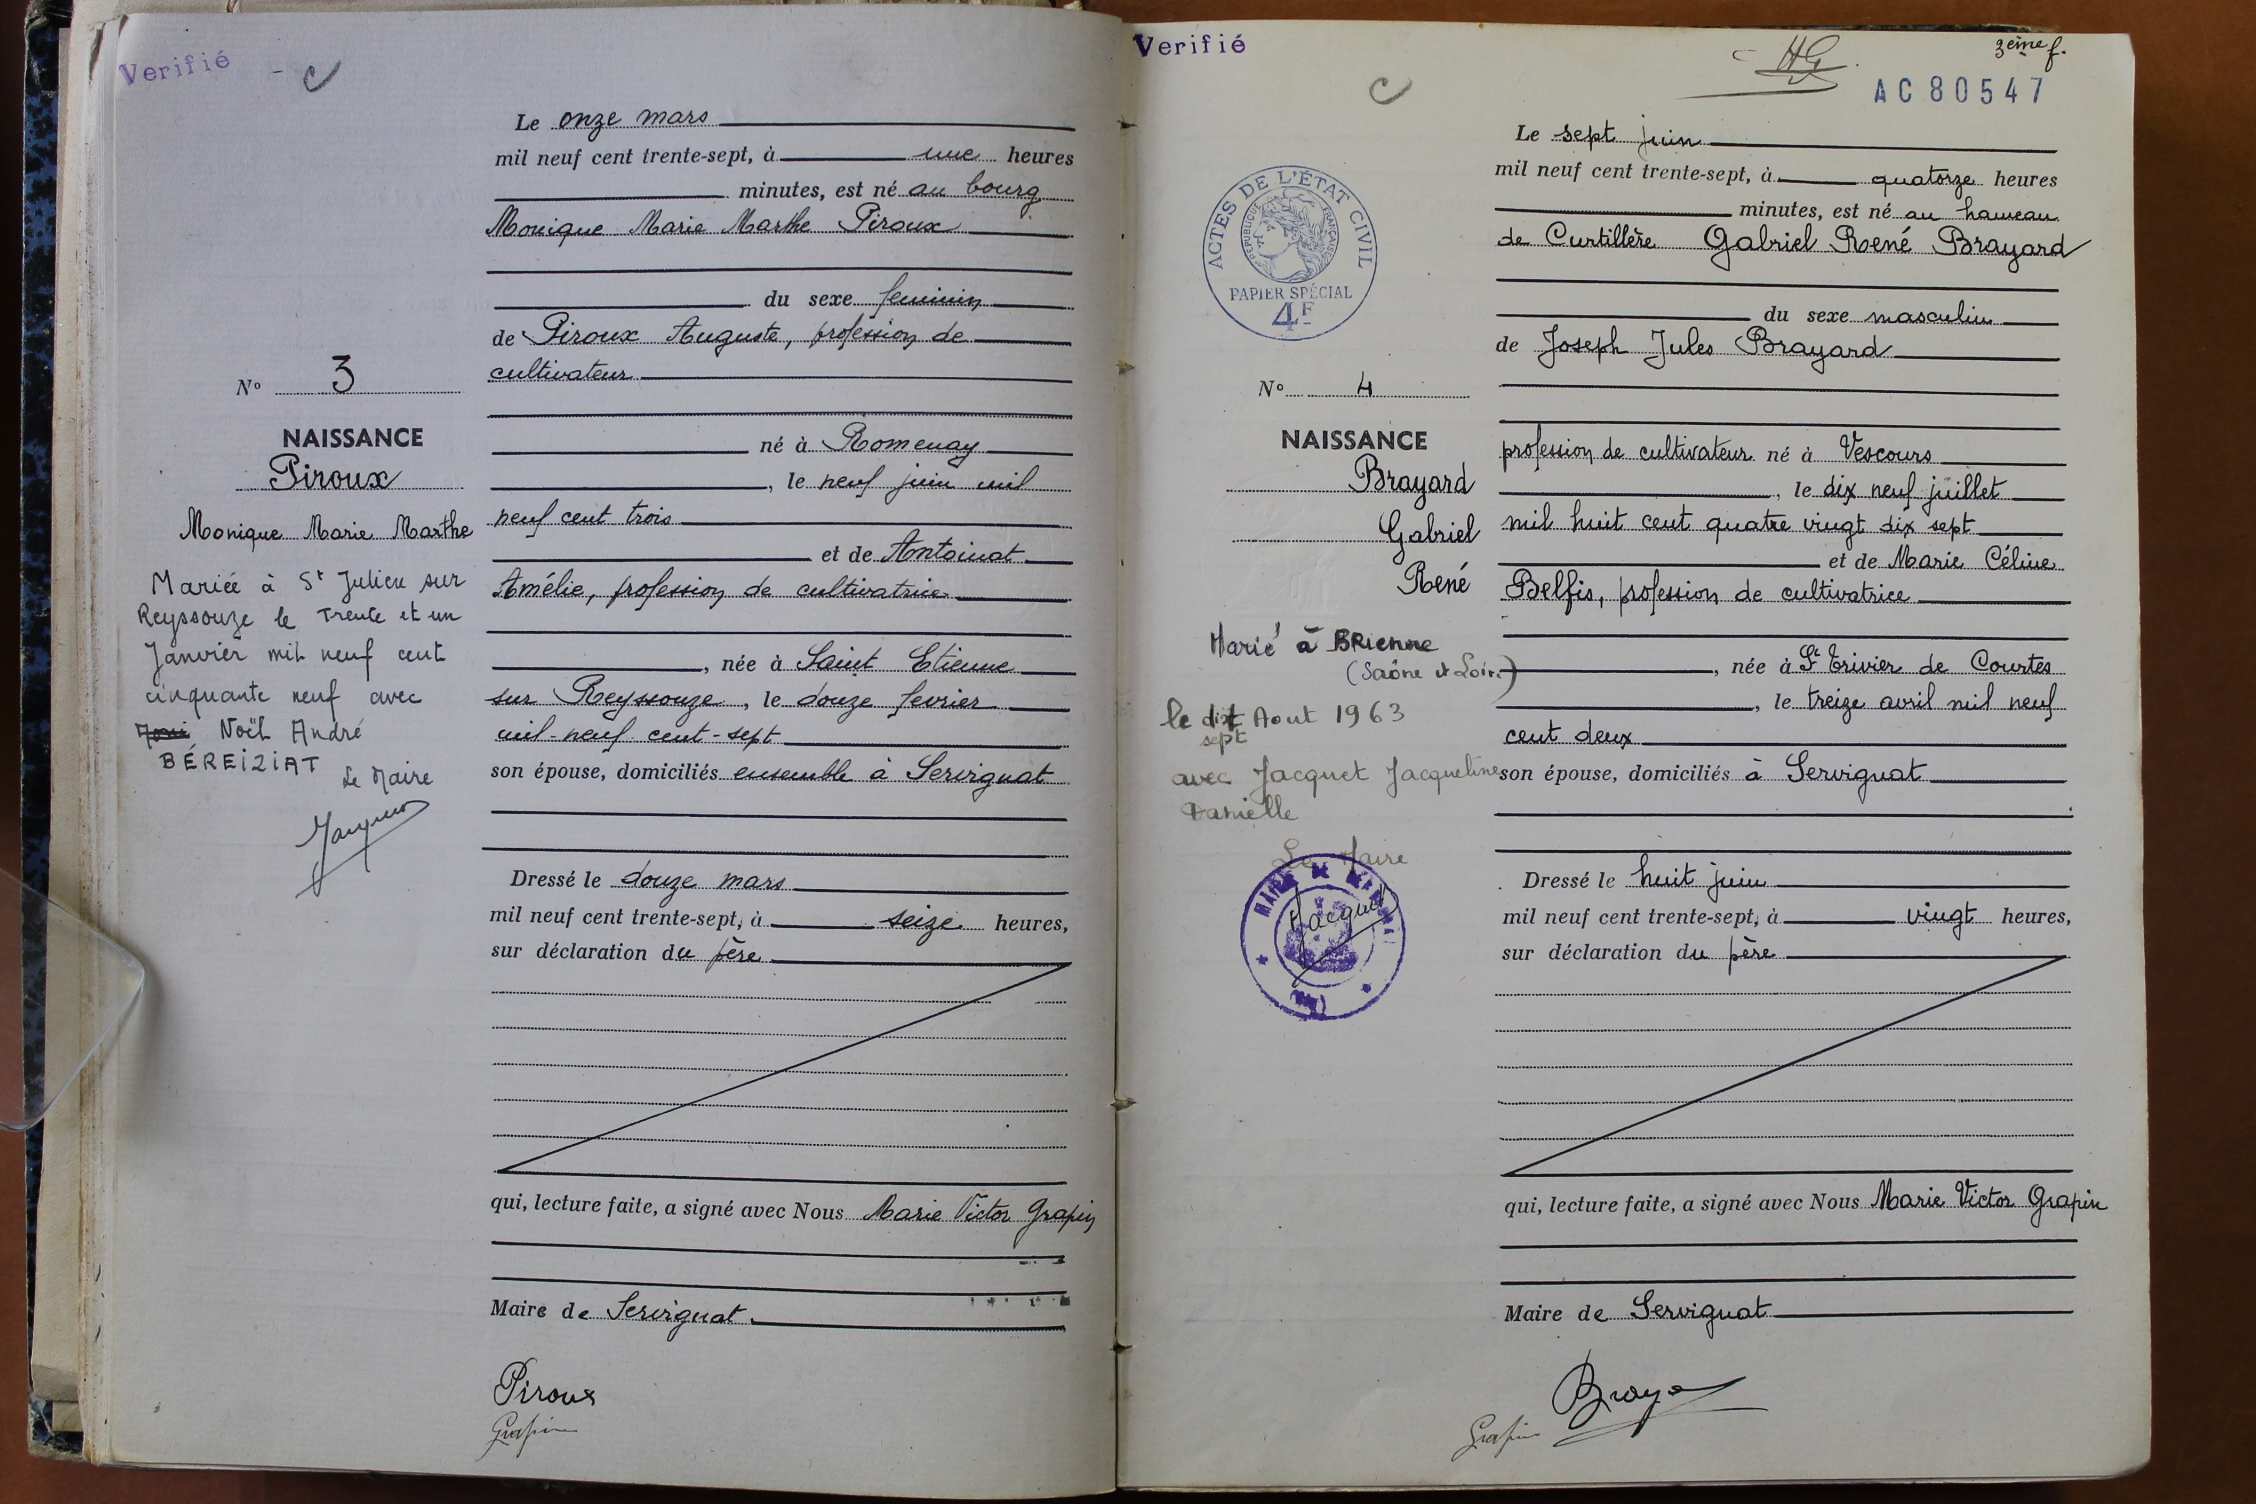 Verifié - C
Le onze mars
mil neuf cent trente-sept, à une heures
minutes, est né au bourg
Monique Marie Marthe Piroux
du sexe feminin
de Piroux Auguste, profession de
cultivateur
né à Romenay
, le neuf juin mil
neuf cent trois
et de Antoinat
Amélie, profession de cultivatrice
, née à Saint Etienne
sur Reyssouze, le douze fevrier
mil-neuf cent-sept
son épouse, domiciliés ensemble à Servignat
Dressé le douze mars
mil neuf cent trente-sept, à seize heures,
sur déclaration du père
qui, lecture faite, a signé avec Nous Marie Victor Grapin
Maire de Servignat
Piroux
Grapin
No 3
NAISSANCE
Piroux
Monique Marie Marthe
Mariée à St Julien sur
Reyssouze le Trente et un
Janvier mil neuf cent
cinquante neuf avec
Noël André
BÉREIZIAT
Le Maire
Verifié
C
HG
3ème f.
AC80547
ACTES DE L'ÉTAT CIVIL
REPUBLIQUE FRANÇAISE
PAPIER SPÉCIAL
4F
No 4
NAISSANCE
Brayard
Gabriel
René
Marié à BRIENNE
(Saône et Loire)
le dix Aout 1963
sept
avec Jacquet Jacqueline
Danielle
Le Maire
Le sept juin
mil neuf cent trente-sept, à quatorze heures
minutes, est né au hameau
de Curtillère Gabriel René Brayard
du sexe masculin
de Joseph Jules Brayard
profession de cultivateur né à Vescours
, le dix neuf juillet
mil huit cent quatre vingt dix sept
et de Marie Céline
Belfis, profession de cultivatrice
, née à St Trivier de Courtes
, le treize avril mil neuf
cent deux
son épouse, domiciliés à Servignat
Dressé le huit juin
mil neuf cent trente-sept, à vingt heures,
sur déclaration du père
qui, lecture faite, a signé avec Nous Marie Victor Grapin
Maire de Servignat
Grapin